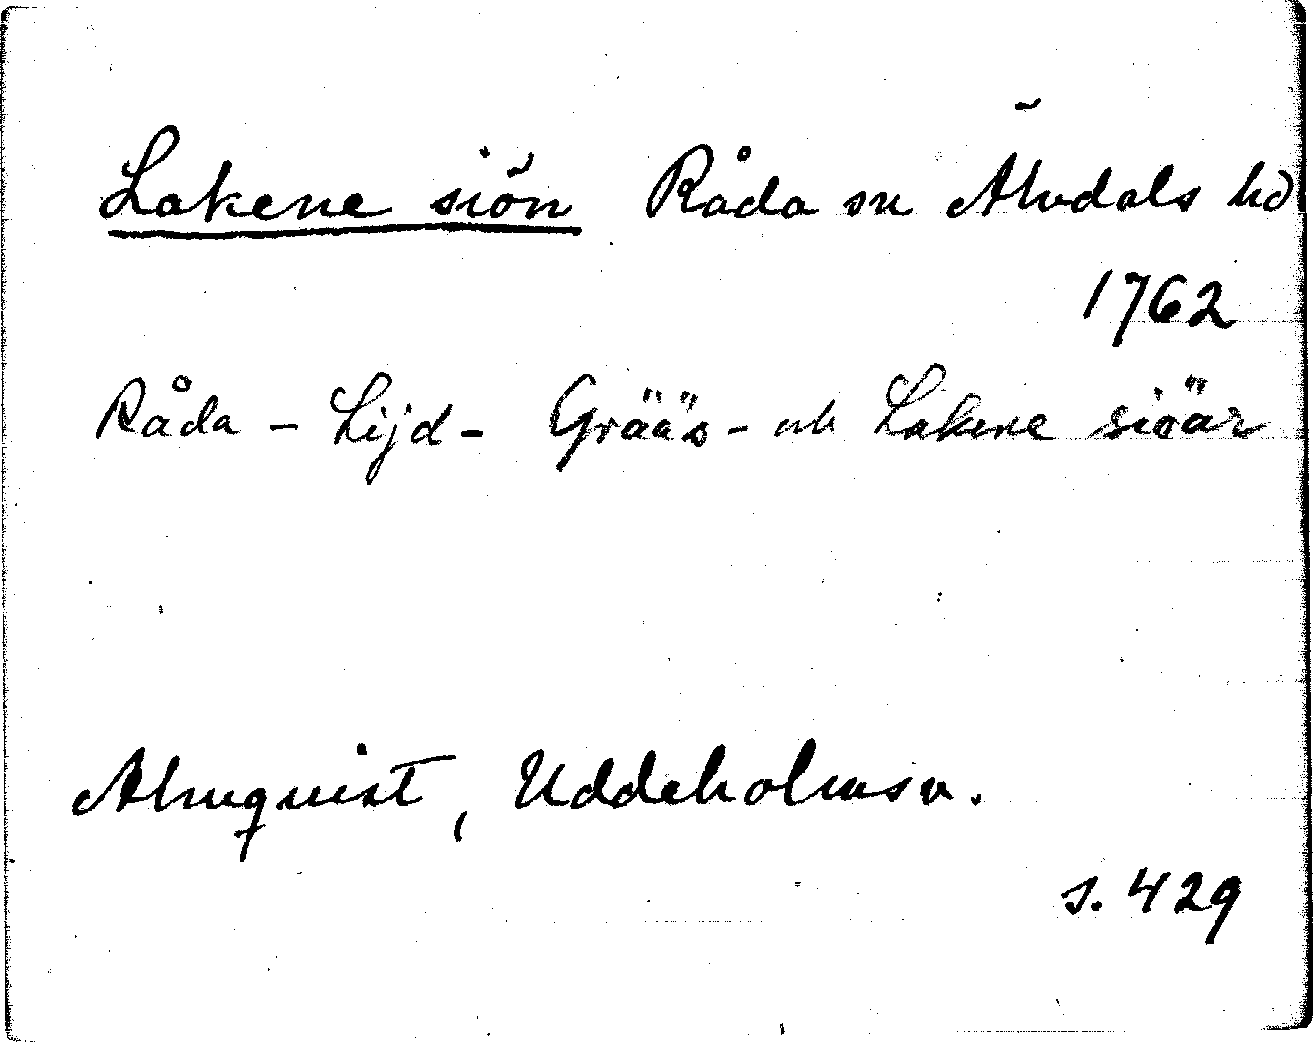 Lakene siön Råda sn Älvdals hd
1762
Råda - Lijd - Grääs - och Lakene siöär
Almquist, Uddeholmsv.
s. 429